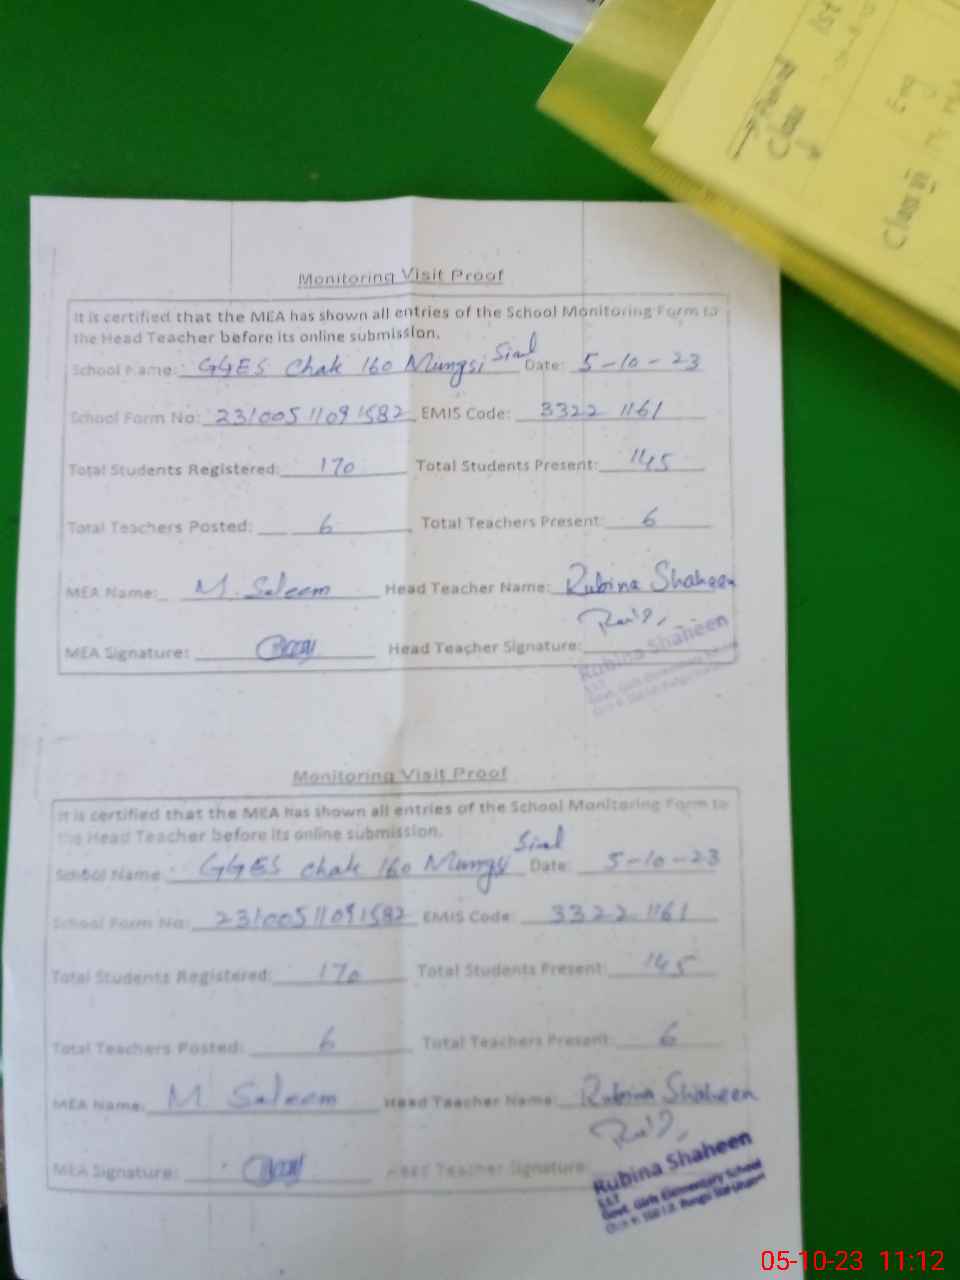 1st
Period
Class
Eng
Class
Monitoring Visit Proof
It is certified that the MEA has shown all entries of the School Monitoring Form to
the Head Teacher before its online submission.
School Name: GGES Chak 160 Mungsi Sial Date: 5-10-23
School Form No: 23100511091582 EMIS Code: 33221161
Total Students Registered: 170 Total Students Present: 145
Total Teachers Posted: 6 Total Teachers Present: 6
MEA Name: M. Saleem Head Teacher Name: Rubina Shaheen
MEA Signature: Head Teacher Signature:
Rubina Shaheen
S.S.T
Govt. Girls Elementary School
Monitoring Visit Proof
It is certified that the MEA has shown all entries of the School Monitoring Form to
the Head Teacher before its online submission.
School Name: GGES Chak 160 Mungsi Sial Date: 5-10-23
School Form No: 23100511091582 EMIS Code: 33221161
Total Students Registered: 170 Total Students Present: 145
Total Teachers Posted: 6 Total Teachers Present: 6
MEA Name: M Saleem Head Teacher Name: Rubina Shaheen
MEA Signature: Head Teacher Signature:
Rubina Shaheen
S.S.T
Govt. Girls Elementary School
05-10-23 11:12